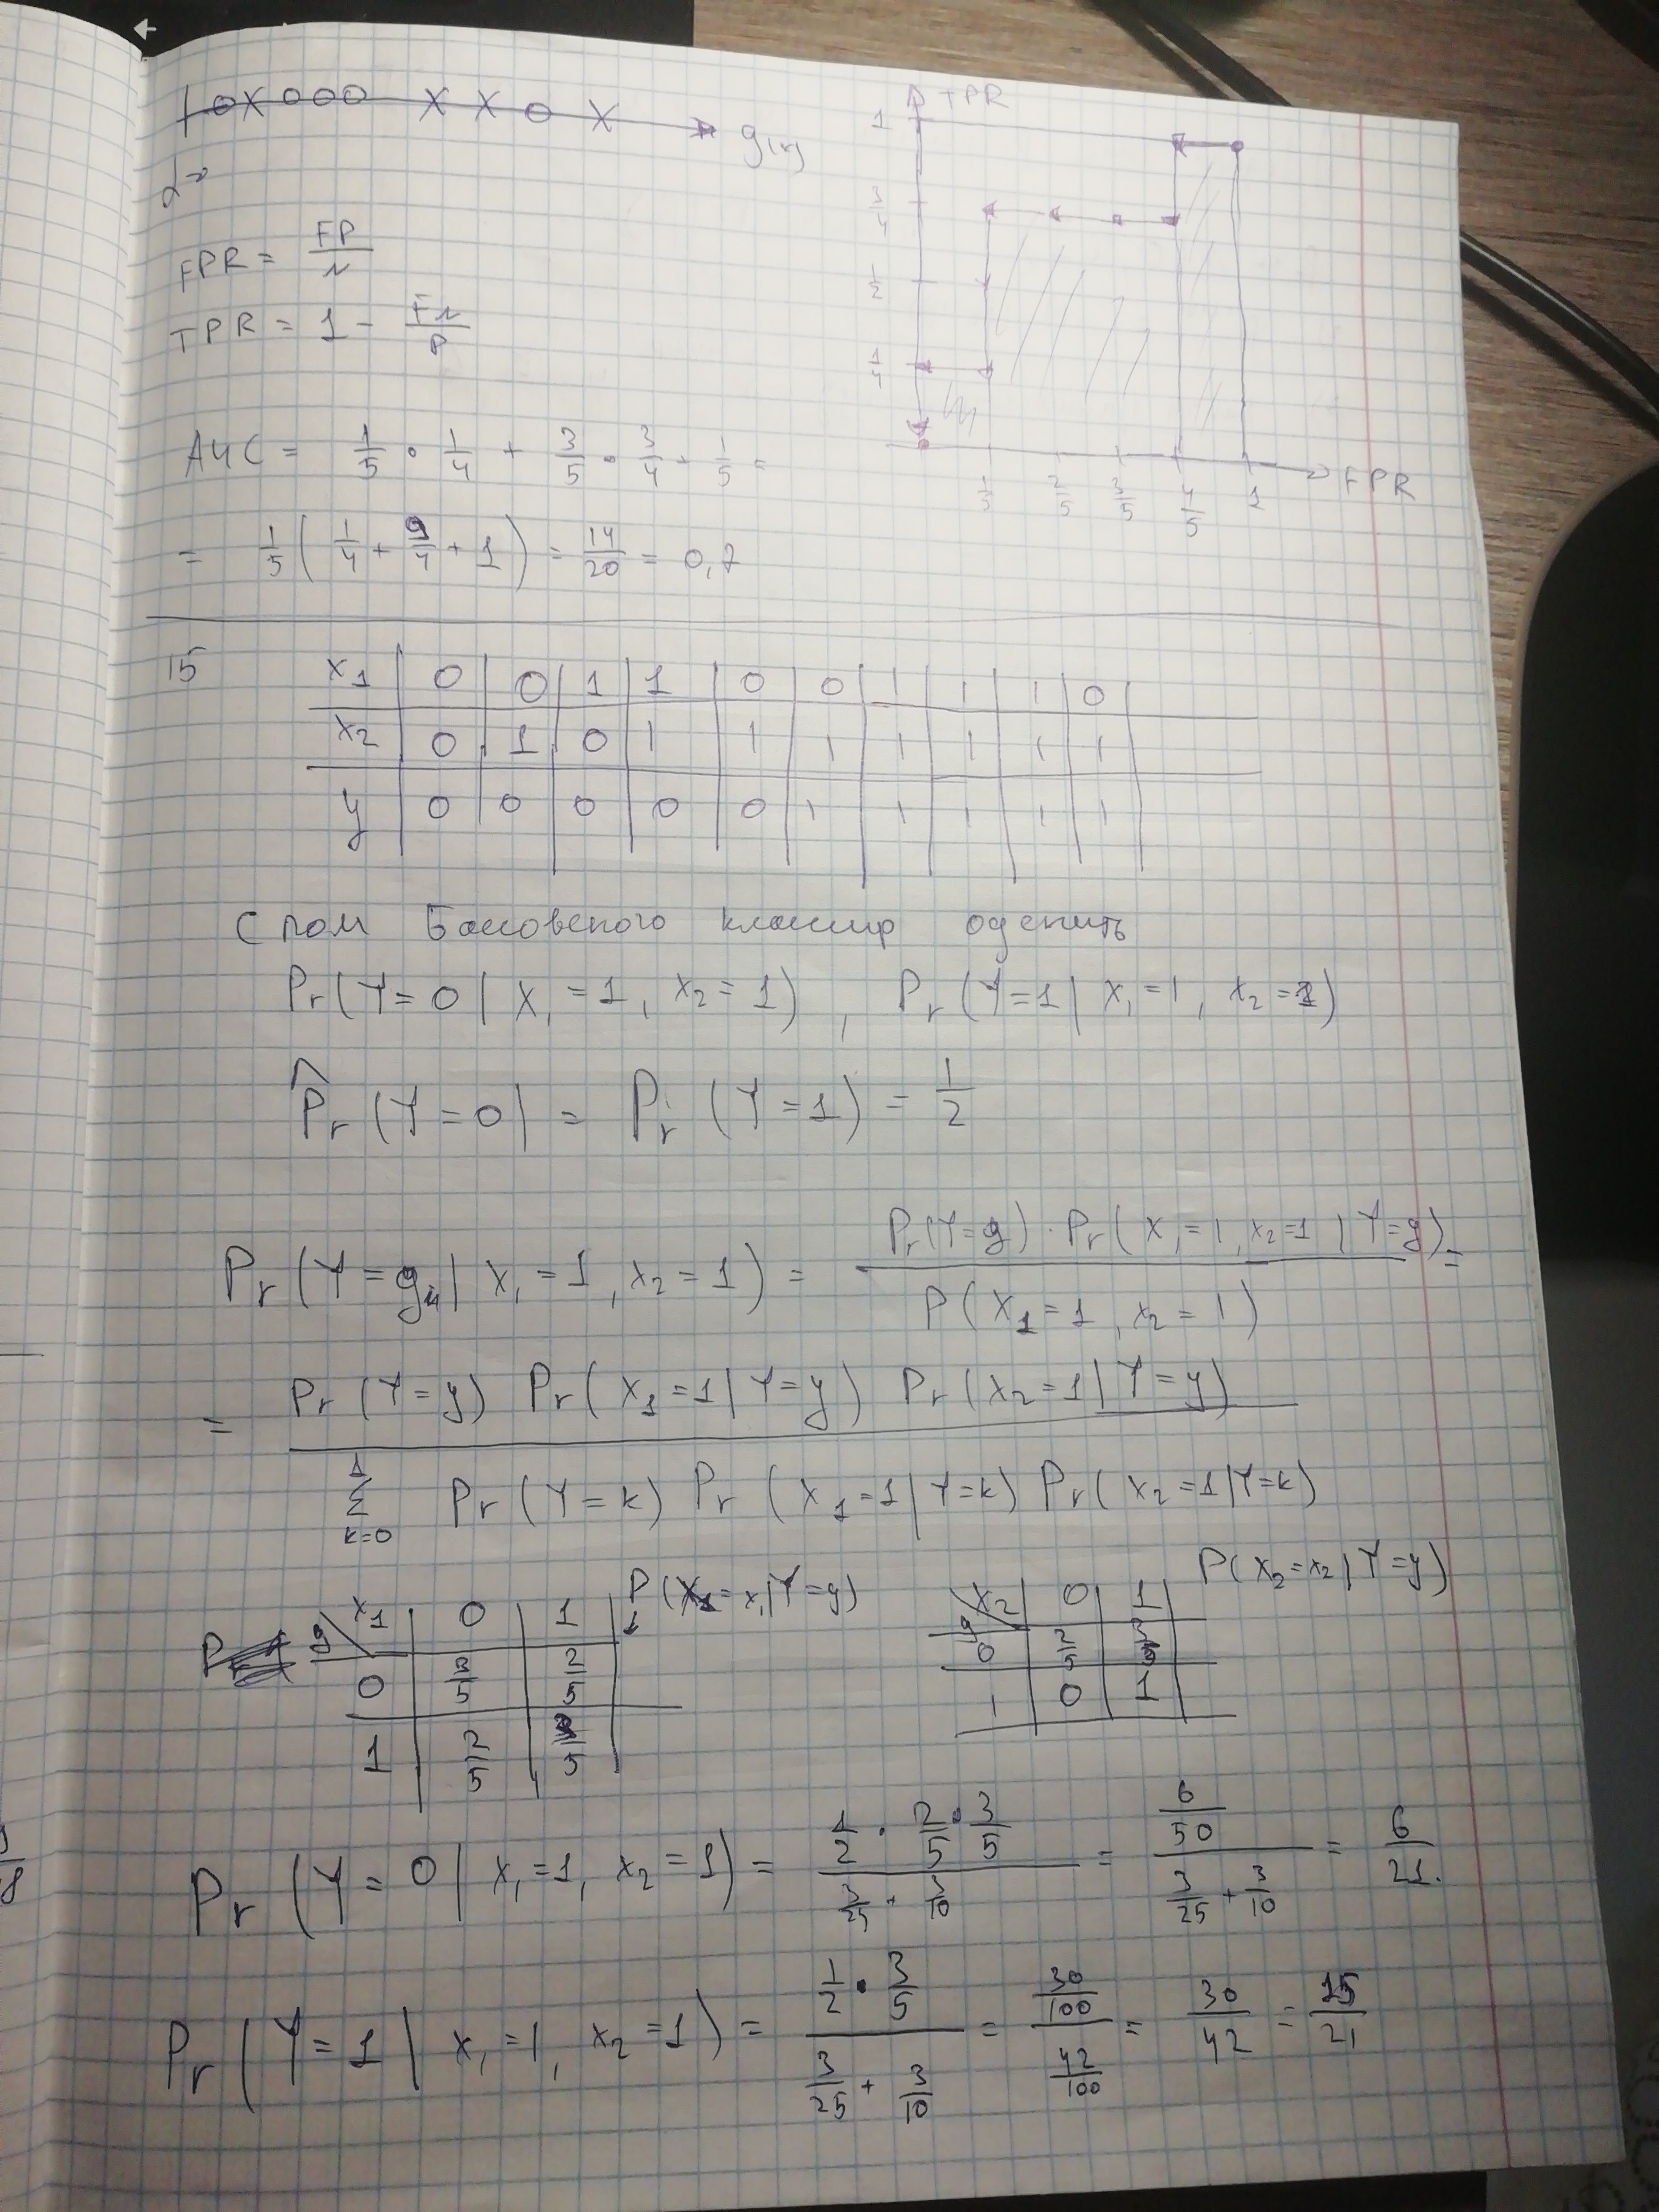 o x o o o x x o x g(x)
α =
FPR = FP/N
TPR = 1 - FN/P
AUC = 1/5 · 1/4 + 3/5 · 3/4 + 1/5 =
= 1/5 ( 1/4 + 9/4 + 1 ) = 14/20 = 0,7
TPR
1
3/4
1/2
1/4
1/5 2/5 3/5 4/5 1 FPR
15
x1 | 0 | 0 | 1 | 1 | 0 | 0 | 1 | 1 | 1 | 0
x2 | 0 | 1 | 0 | 1 | 1 | 1 | 1 | 1 | 1 | 1
y | 0 | 0 | 0 | 0 | 0 | 1 | 1 | 1 | 1 | 1
С пом Баесовского классиф оценить
Pr(Y=0 | X1=1, x2=1), Pr(Y=1 | X1=1, x2=1)
P̂r (Y=0) = Pr (Y=1) = 1/2
Pr (Y=y | X1=1, x2=1) = Pr(Y=y) · Pr(X1=1, x2=1 | Y=y) / P(X1=1, x2=1) =
= Pr(Y=y) Pr(X1=1 | Y=y) Pr(X2=1 | Y=y) / Σ k=0 1 Pr(Y=k) Pr(X1=1 | Y=k) Pr(X2=1 | Y=k)
y \ x1 | 0 | 1 | P(X1=x1 | Y=y)
0 | 3/5 | 2/5
1 | 2/5 | 3/5
y \ x2 | 0 | 1 | P(X2=x2 | Y=y)
0 | 2/5 | 3/5
1 | 0 | 1
Pr (Y=0 | X1=1, x2=1) = (1/2 · 2/5 · 3/5) / (3/25 + 3/10) = (6/50) / (3/25 + 3/10) = 6/21.
Pr (Y=1 | x1=1, x2=1) = (1/2 · 3/5) / (3/25 + 3/10) = (30/100) / (42/100) = 30/42 = 15/21